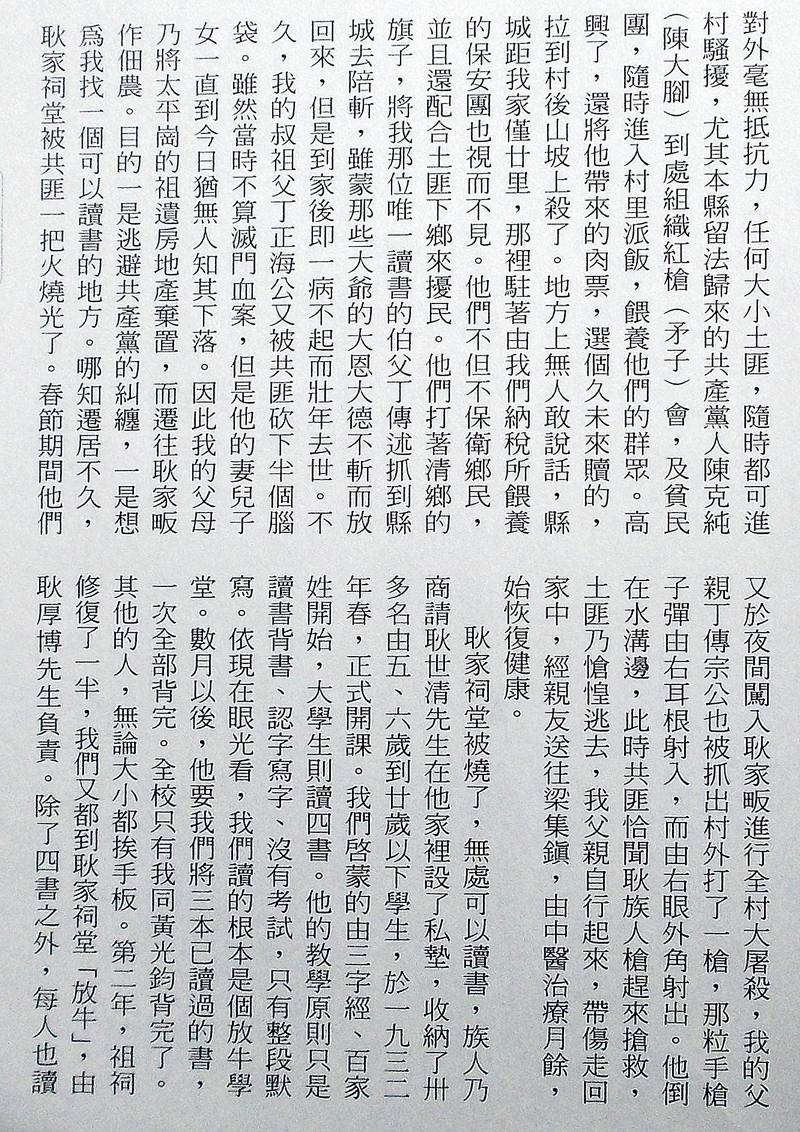 對外毫無抵抗力，任何大小土匪，隨時都可進
村騷擾，尤其本縣留法歸來的共產黨人陳克純
（陳大腳）到處組織紅槍（矛子）會，及貧民
團，隨時進入村里派飯，餵養他們的群眾。高
興了，還將他帶來的肉票，選個久未來贖的，
拉到村後山坡上殺了。地方上無人敢說話，縣
城距我家僅廿里，那裡駐著由我們納稅所餵養
的保安團也視而不見。他們不但不保衛鄉民，
並且還配合土匪下鄉來擾民。他們打著清鄉的
旗子，將我那位唯一讀書的伯父丁傳述抓到縣
城去陪斬，雖蒙那些大爺的大恩大德不斬而放
回來，但是到家後即一病不起而壯年去世。不
久，我的叔祖父丁正海公又被共匪砍下半個腦
袋。雖然當時不算滅門血案，但是他的妻兒子
女一直到今日猶無人知其下落。因此我的父母
乃將太平崗的祖遺房地產棄置，而遷往耿家畈
作佃農。目的一是逃避共產黨的糾纏，一是想
爲我找一個可以讀書的地方。哪知遷居不久，
耿家祠堂被共匪一把火燒光了。春節期間他們
又於夜間闖入耿家畈進行全村大屠殺，我的父
親丁傳宗公也被抓出村外打了一槍，那粒手槍
子彈由右耳根射入，而由右眼外角射出。他倒
在水溝邊，此時共匪恰聞耿族人槍趕來搶救，
土匪乃愴惶逃去，我父親自行起來，帶傷走回
家中，經親友送往梁集鎭，由中醫治療月餘，
始恢復健康。
耿家祠堂被燒了，無處可以讀書，族人乃
商請耿世清先生在他家裡設了私塾，收納了卅
多名由五、六歲到廿歲以下學生，於一九三二
年春，正式開課。我們啓蒙的由三字經、百家
姓開始，大學生則讀四書。他的教學原則只是
讀書背書、認字寫字、沒有考試，只有整段默
寫。依現在眼光看，我們讀的根本是個放牛學
堂。數月以後，他要我們將三本已讀過的書，
一次全部背完。全校只有我同黃光鈞背完了。
其他的人，無論大小都挨手板。第二年，祖祠
修復了一半，我們又都到耿家祠堂「放牛」，由
耿厚博先生負責。除了四書之外，每人也讀